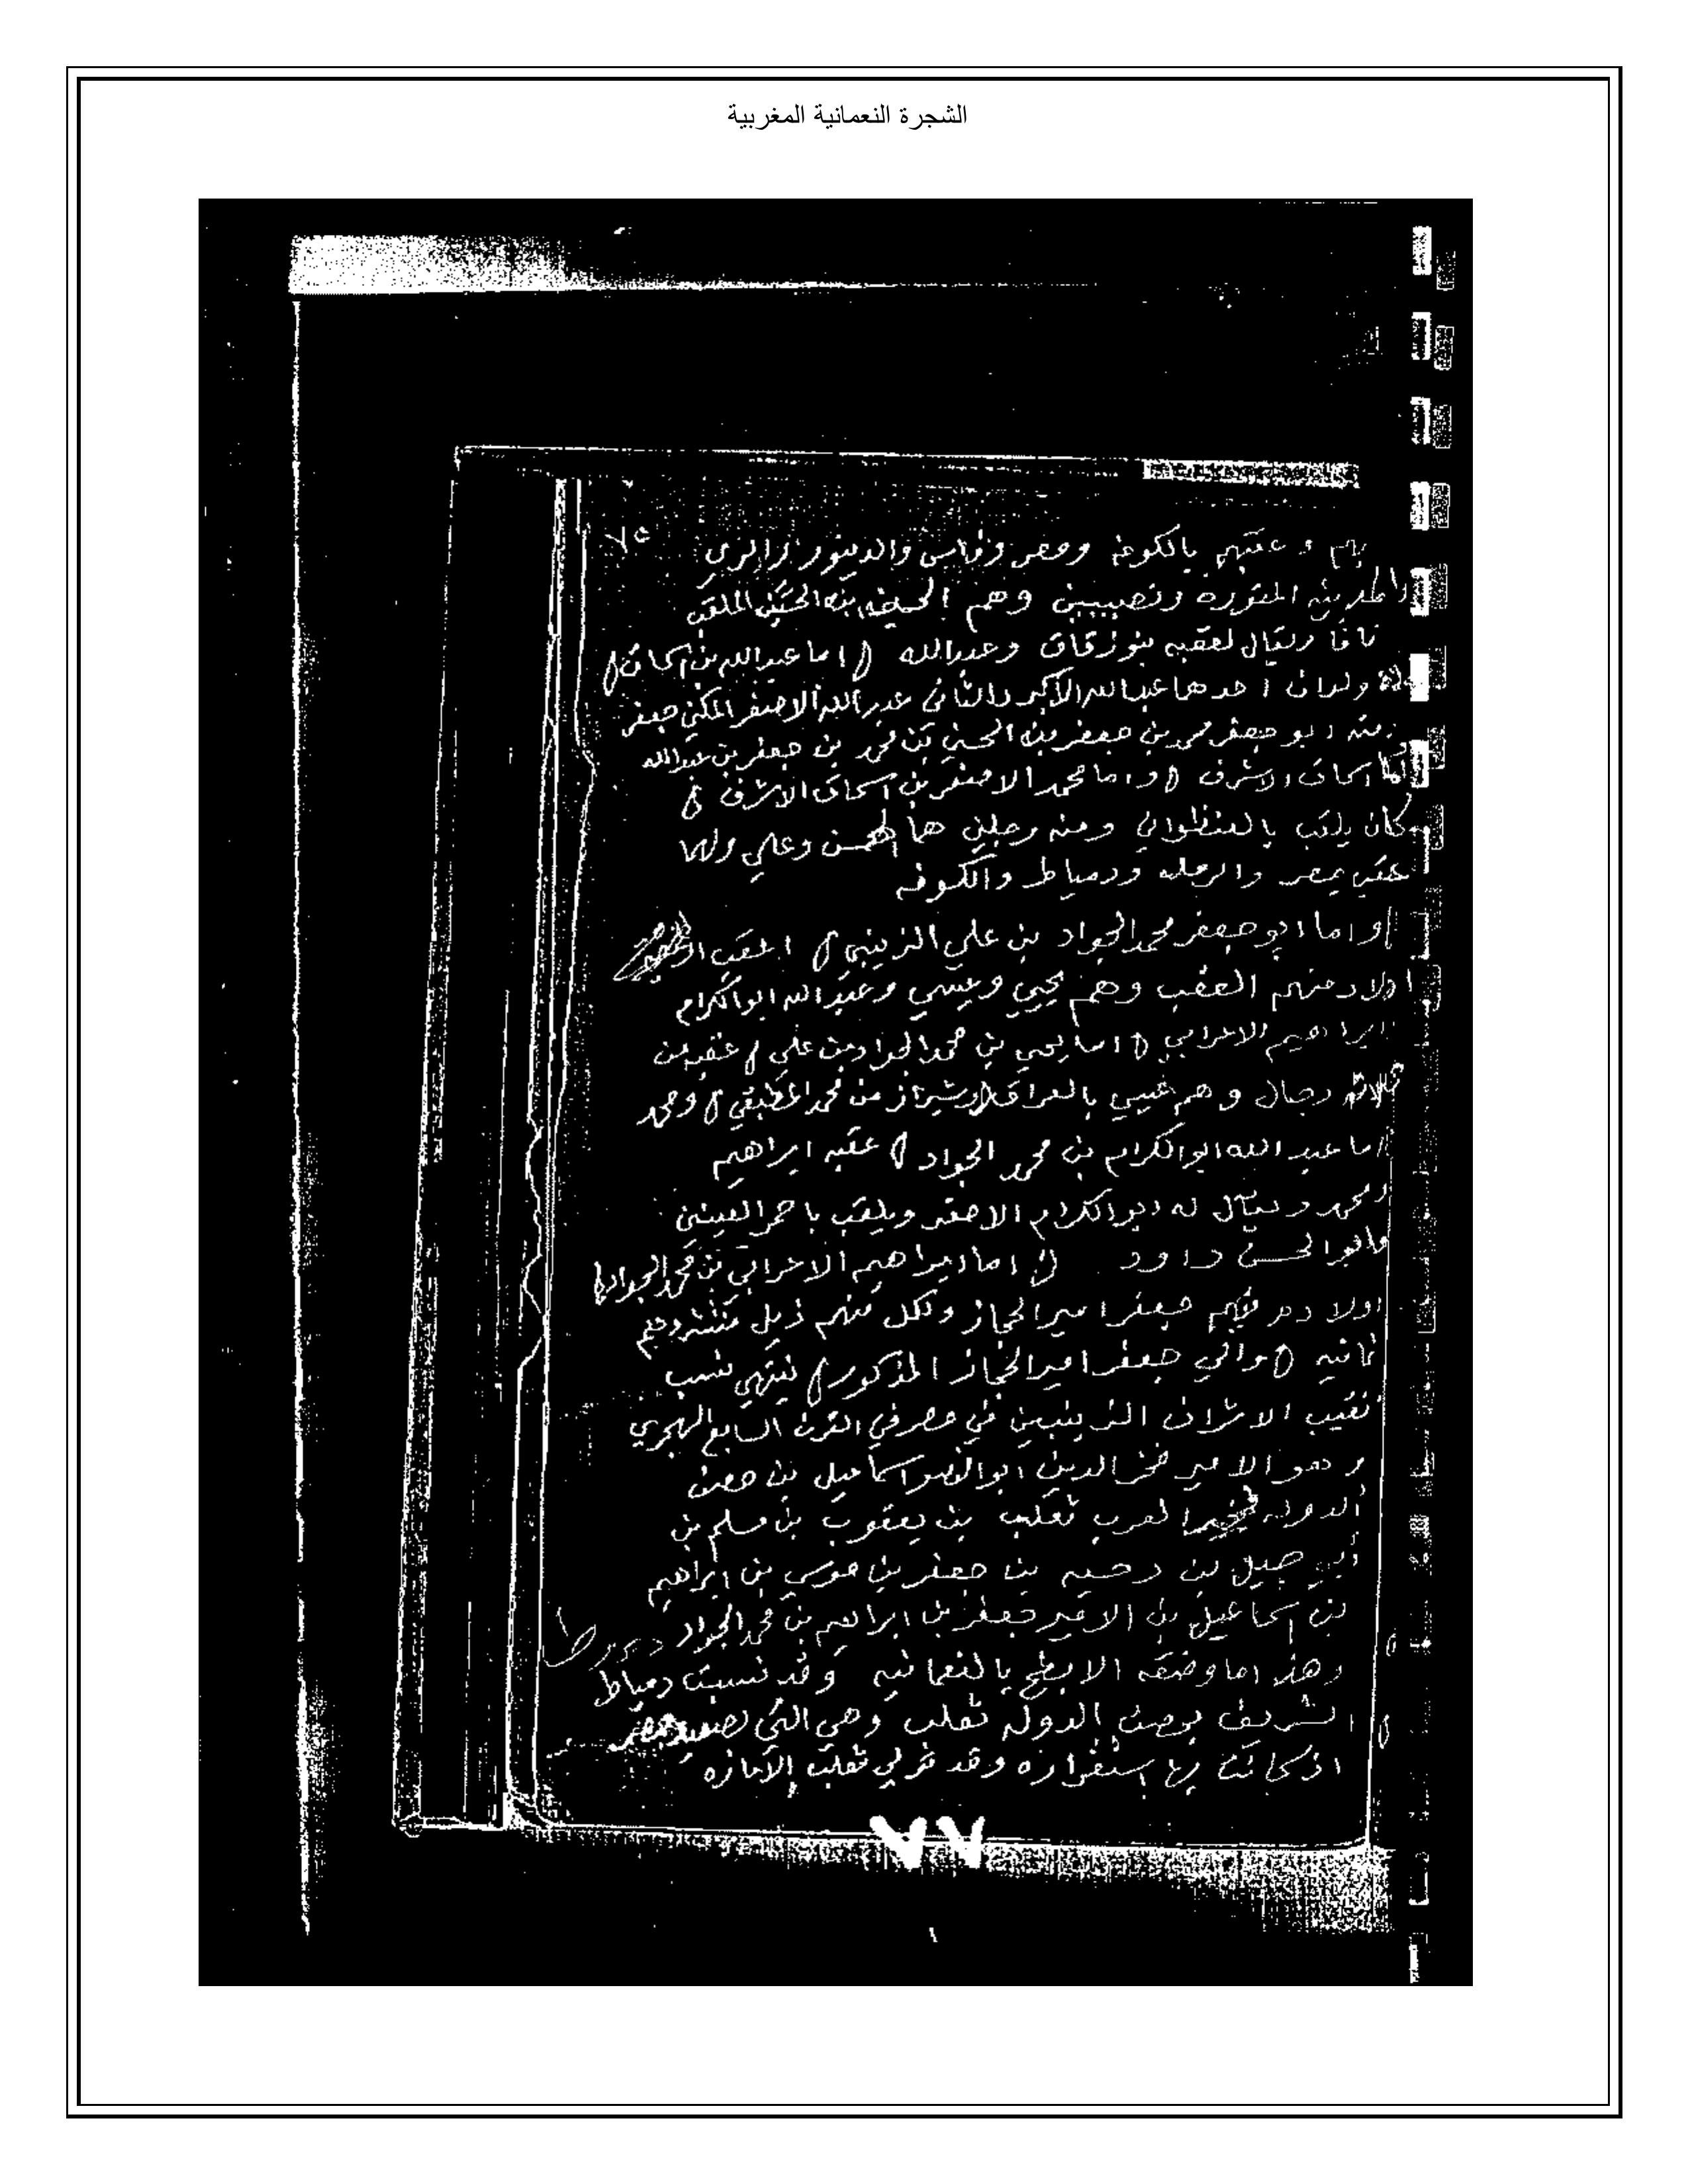 الشجرة النعمانية المغربية
٧٥
وعقبهم بالكوفه ومصر وفاس والدينور والري
المنوره ونصيبين وهم الحسين الملقب
ويقال لعقبه بنو زقاق وعبدالله اما عبدالله بن اسحاق
ولدان احدهما عبدالله الاكبر والثاني عبدالله الاصغر المكني جعفر
ابو جعفر محمد بن جعفر بن الحسن بن محمد بن جعفر بن عبدالله
اسحاق الاشرف واما محمد الاصغر بن اسحاق الاشرف
كان يلقب بالعنطواني ومنه رجلين هما الحسن وعلي ولهما
عقب بمصر والرمله ودمياط والكوفه
واما ابو جعفر محمد الجواد بن علي الزينبي اعقب
اولاد منهم العقب وهم يحيي وعيسي وعبدالله ابوالكرام
ابراهيم الاعرابي اما يحيي بن محمد الجواد بن علي عقبه من
ثلاثه رجال وهم عيسي بالعراق وشيراز من محمد المطبقي ومحمد
اما عبدالله ابوالكرام بن محمد الجواد عقبه ابراهيم
ومحمد ويقال له ابوالكرام الاصغر ويلقب باحمر العينين
وابوالحسن داود اما ابراهيم الاعرابي بن محمد الجواد
اولاده فيهم جعفر امير الحجاز ولكل منهم ذيل منتشر وهم
ثمانيه والي جعفر امير الحجاز المذكور ينتهي نسب
نقيب الاشراف الزينبين في مصر في القرن السابع الهجري
وهو الامير فخر الدين ابوالنصر اسماعيل بن حصن
الدوله العرب ثعلب بن يعقوب بن مسلم بن
أبي جميل بن دحيه بن جعفر بن موسي بن ابراهيم
بن اسماعيل بن الامير جعفر بن ابراهيم بن محمد الجواد
وهذا ما وضعه الابطح بالنعمانيه وقد نسبت دمياط
الشريف بحصن الدوله ثعلب وهي التي
اذ كانت بها استقراره وقد تولي ثعلب الاماره
٧٧